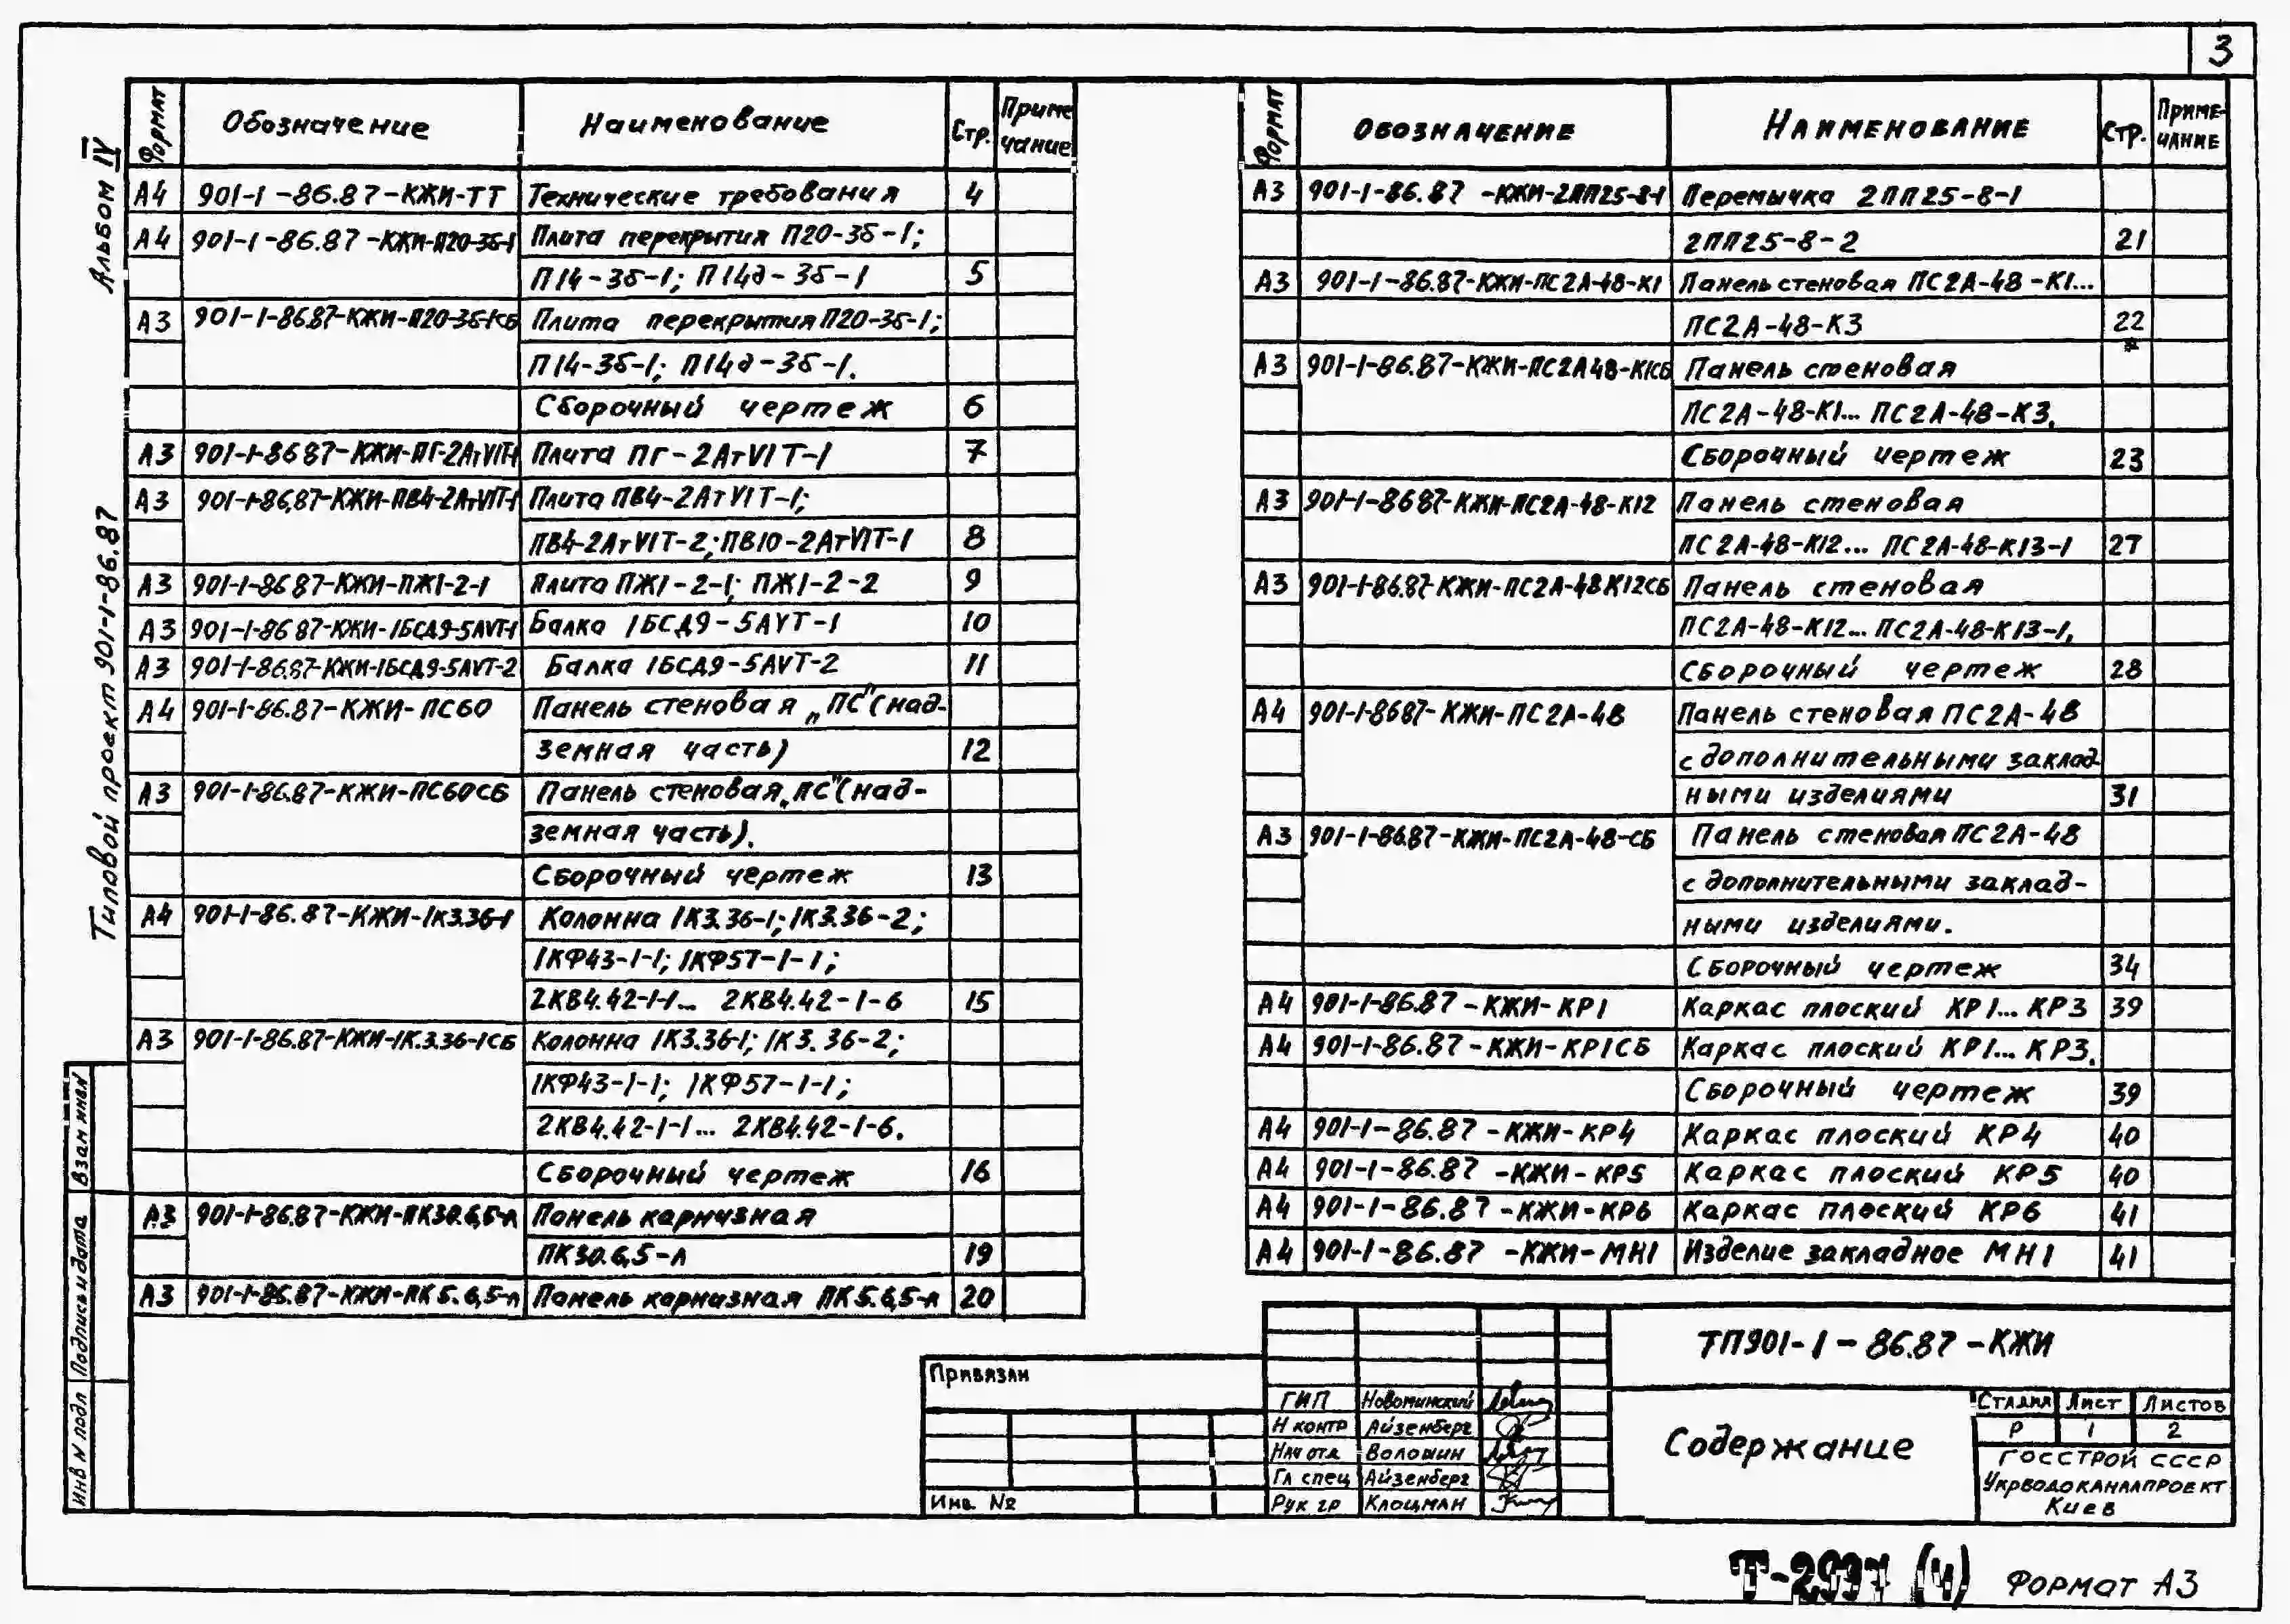 3
Альбом IV
Типовой проект 901-1-86.87
Формат Обозначение Наименование Стр. Приме чание
А4 901-1-86.87-КЖИ-ТТ Технические требования 4
А4 901-1-86.87-КЖИ-П20-3б-1 Плита перекрытия П20-3б-1;
П14-3б-1; П14д-3б-1 5
А3 901-1-86.87-КЖИ-П20-3б-1СБ Плита перекрытия П20-3б-1;
П14-3б-1; П14д-3б-1.
Сборочный чертеж 6
А3 901-1-86 87-КЖИ-ПГ-2АтVIТ-1 Плита ПГ-2АтVIТ-1 7
А3 901-1-86.87-КЖИ-ПВ4-2АтVIТ-1 Плита ПВ4-2АтVIТ-1;
ПВ4-2АтVIТ-2; ПВ10-2АтVIТ-1 8
А3 901-1-86 87-КЖИ-ПЖ1-2-1 Плита ПЖ1-2-1; ПЖ1-2-2 9
А3 901-1-86 87-КЖИ-1БСД9-5АVТ-1 Балка 1БСД9-5АVТ-1 10
А3 901-1-86.87-КЖИ-1БСД9-5АVТ-2 Балка 1БСД9-5АVТ-2 11
А4 901-1-86.87-КЖИ-ПС60 Панель стеновая „ПС"(над-
земная часть) 12
А3 901-1-86.87-КЖИ-ПС60СБ Панель стеновая „ПС"(над-
земная часть).
Сборочный чертеж 13
А4 901-1-86.87-КЖИ-1К3.36-1 Колонна 1К3.36-1; 1К3.36-2;
1КФ43-1-1; 1КФ57-1-1;
2КВ4.42-1-1... 2КВ4.42-1-6 15
А3 901-1-86.87-КЖИ-1К.3.36-1СБ Колонна 1К3.36-1; 1К3.36-2;
1КФ43-1-1; 1КФ57-1-1;
2КВ4.42-1-1... 2КВ4.42-1-6.
Сборочный чертеж 16
А3 901-1-86.87-КЖИ-ПК30.6,5-л Панель карнизная
ПК30.6,5-л 19
А3 901-1-86.87-КЖИ-ПК5.6,5-л Панель карнизная ПК5.6,5-л 20
Формат Обозначение Наименование Стр. Приме- чание
А3 901-1-86.87-КЖИ-2ПП25-8-1 Перемычка 2ПП25-8-1
2ПП25-8-2 21
А3 901-1-86.87-КЖИ-ПС2А-48-К1 Панель стеновая ПС2А-48-К1...
ПС2А-48-К3 22
А3 901-1-86.87-КЖИ-ПС2А48-К1СБ Панель стеновая
ПС2А-48-К1... ПС2А-48-К3.
Сборочный чертеж 23
А3 901-1-86 87-КЖИ-ПС2А-48-К12 Панель стеновая
ПС2А-48-К12... ПС2А-48-К13-1 27
А3 901-1-86.87-КЖИ-ПС2А-48К12СБ Панель стеновая
ПС2А-48-К12... ПС2А-48-К13-1.
Сборочный чертеж 28
А4 901-1-86 87-КЖИ-ПС2А-48 Панель стеновая ПС2А-48
с дополнительными заклад-
ными изделиями 31
А3 901-1-86.87-КЖИ-ПС2А-48-СБ Панель стеновая ПС2А-48
с дополнительными заклад-
ными изделиями.
Сборочный чертеж 34
А4 901-1-86.87-КЖИ-КР1 Каркас плоский КР1... КР3 39
А4 901-1-86.87-КЖИ-КР1СБ Каркас плоский КР1... КР3.
Сборочный чертеж 39
А4 901-1-86.87-КЖИ-КР4 Каркас плоский КР4 40
А4 901-1-86.87-КЖИ-КР5 Каркас плоский КР5 40
А4 901-1-86.87-КЖИ-КР6 Каркас плоский КР6 41
А4 901-1-86.87-КЖИ-МН1 Изделие закладное МН1 41
Взам инв№
Подпись и дата
Инв N подл
Привязан
Инв. №
ГИП Новоминский
Н контр Айзенберг
Нач отд Волошин
Гл спец Айзенберг
Рук гр Клоцман
ТП901-1-86.87-КЖИ
Содержание
Стадия Лист Листов
Р 1 2
ГОССТРОЙ СССР
УКРВОДОКАНАЛПРОЕКТ
Киев
Т-2997 (4) Формат А3